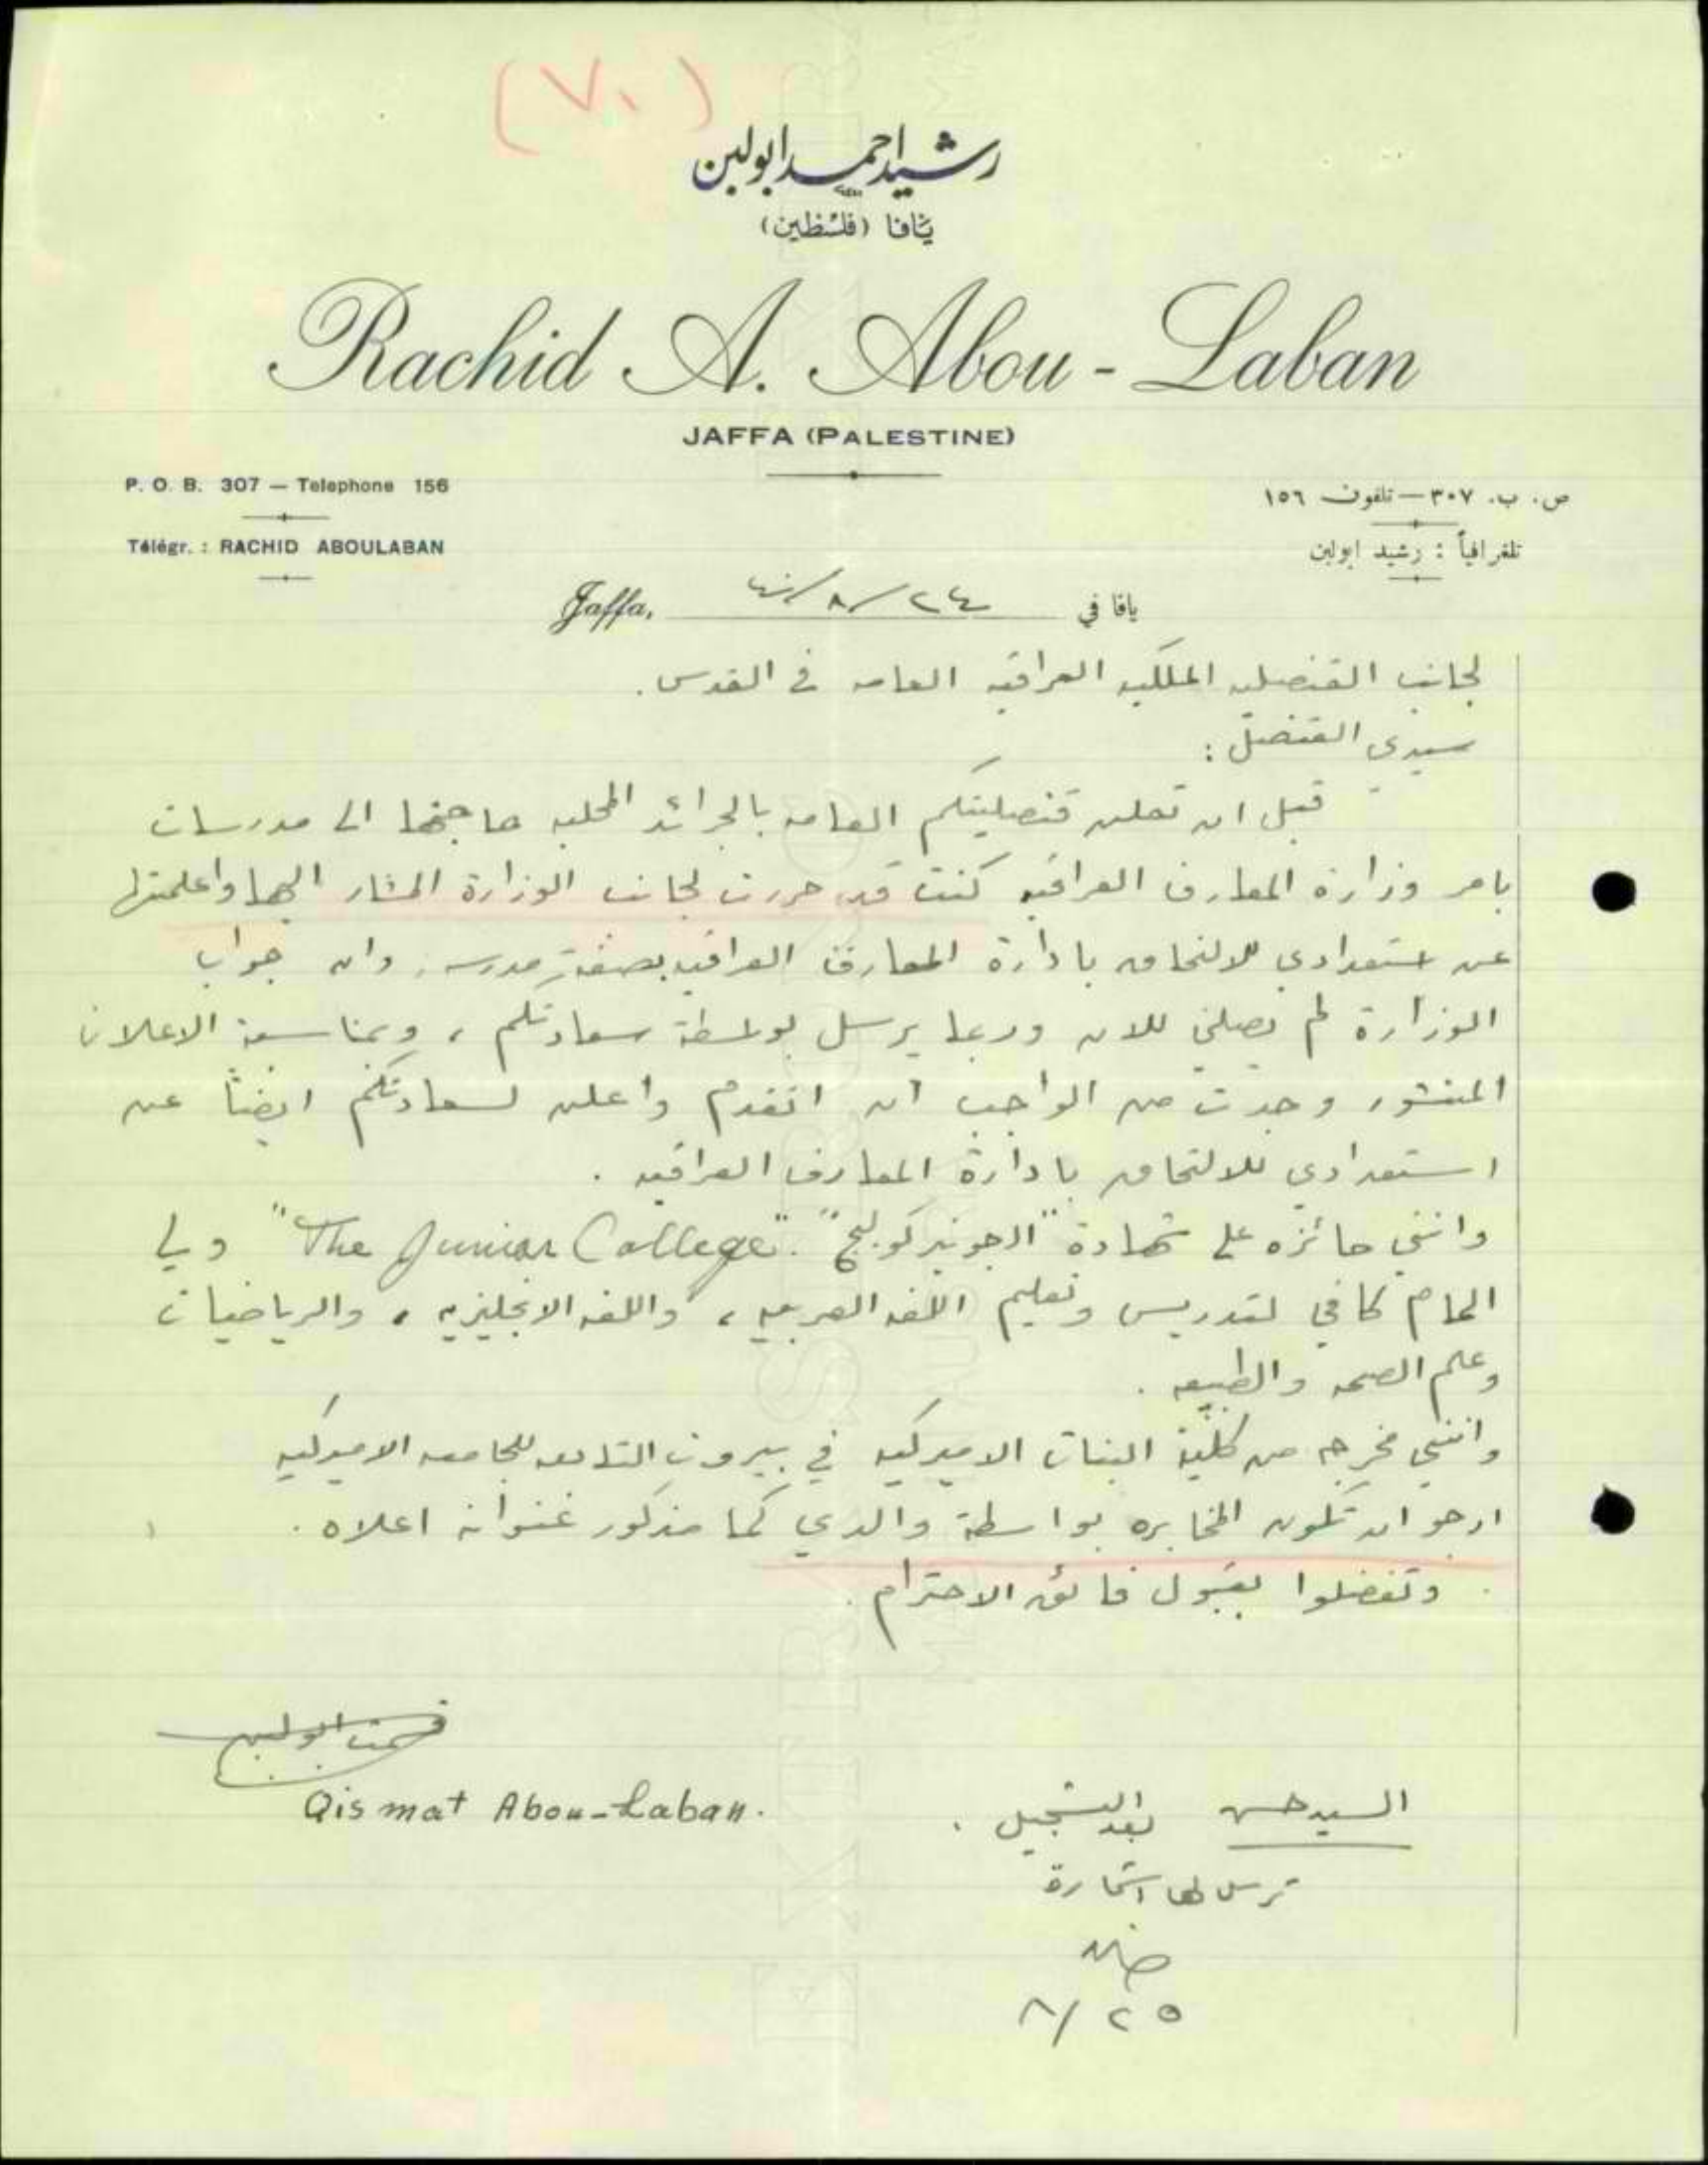 (٧٠)
رشيد احمد ابولبن
يافا (فلسطين)
Rachid A. Abou - Laban
JAFFA (PALESTINE)
P. O. B. 307 — Telephone 156
ص. ب. ٣٠٧ — تلفون ١٥٦
Télégr. : RACHID ABOULABAN
تلغرافياً : رشيد ابولبن
Jaffa, ٢٤/٨/٤٠ يافا في
لجانب القنصليه الملكيه العراقيه العامه في القدس.
سيدي القنصل :
قبل ان تعلن قنصليتكم العامه بالجرائد المحليه حاجتها الى مدرسات
بامر وزارة المعارف العراقيه كنت قد حررت لجانب الوزارة المشار اليها واعلمتها
عن استعدادي للالتحاق بادارة المعارف العراقيه بصفة مدرسه، وان جواب
الوزارة لم يصلني للان وربما يرسل بواسطة سعادتكم، وبمناسبة الاعلان
المنشور وجدت من الواجب ان اتقدم واعلن لسعادتكم ايضاً عن
استعدادي للالتحاق بادارة المعارف العراقيه .
وانني حائزه على شهادة "الجونير كولج" "The Junior College" ولي
المام كافي لتدريس وتعليم اللغه العربيه، واللغه الانجليزيه، والرياضيات
وعلم الصحه والطبيعه .
وانني مخرجه من كلية البنات الاميركيه في بيروت التابعه للجامعه الاميركيه
ارجو ان تكون المخابره بواسطة والدي كما مذكور عنوانه اعلاه .
وتفضلوا بقبول فائق الاحترام .
قسمت ابولبن
Qismat Abou-Laban.
السيد حسن بعد التسجيل .
ترسل لها استمارة
٢٥/٨